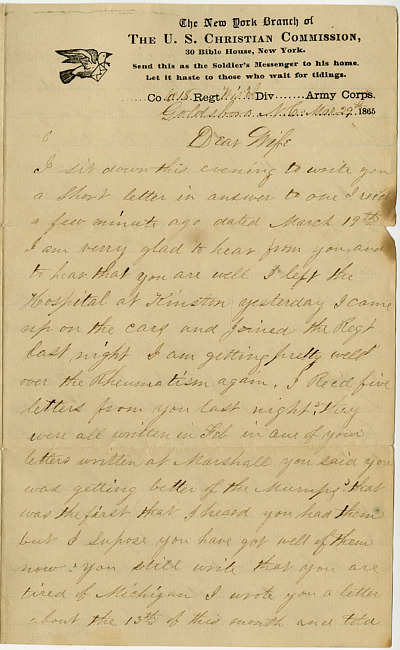 The New York Branch of
THE U. S. CHRISTIAN COMMISSION,
30 Bible House, New York.
Send this as the Soldier's Messenger to his home.
Let it haste to those who wait for tidings.
Co. 18 Regt Div Army Corps.
Goldsboro N.C. Mar 29th 1865
Dear Wife
I sit down this evening to write you
a short letter in answer to one I recd
a few minute ago dated March 19th
I am verry glad to hear from you and
to hear that you are well I left the
Hospital at Kinston yesterday I came
up on the cars and joined the Regt
last night I am getting pretty well
over the Rheumatism again. I Recd five
letters from you last night. They
were all written in Feb in one of your
letters written at Marshall you said you
was getting better of the Mumps that
was the first that I heard you had them
but I supose you have got well of them
now. you still write that you are
tired of Michigan I wrote you a letter
about the 13th of this month and told